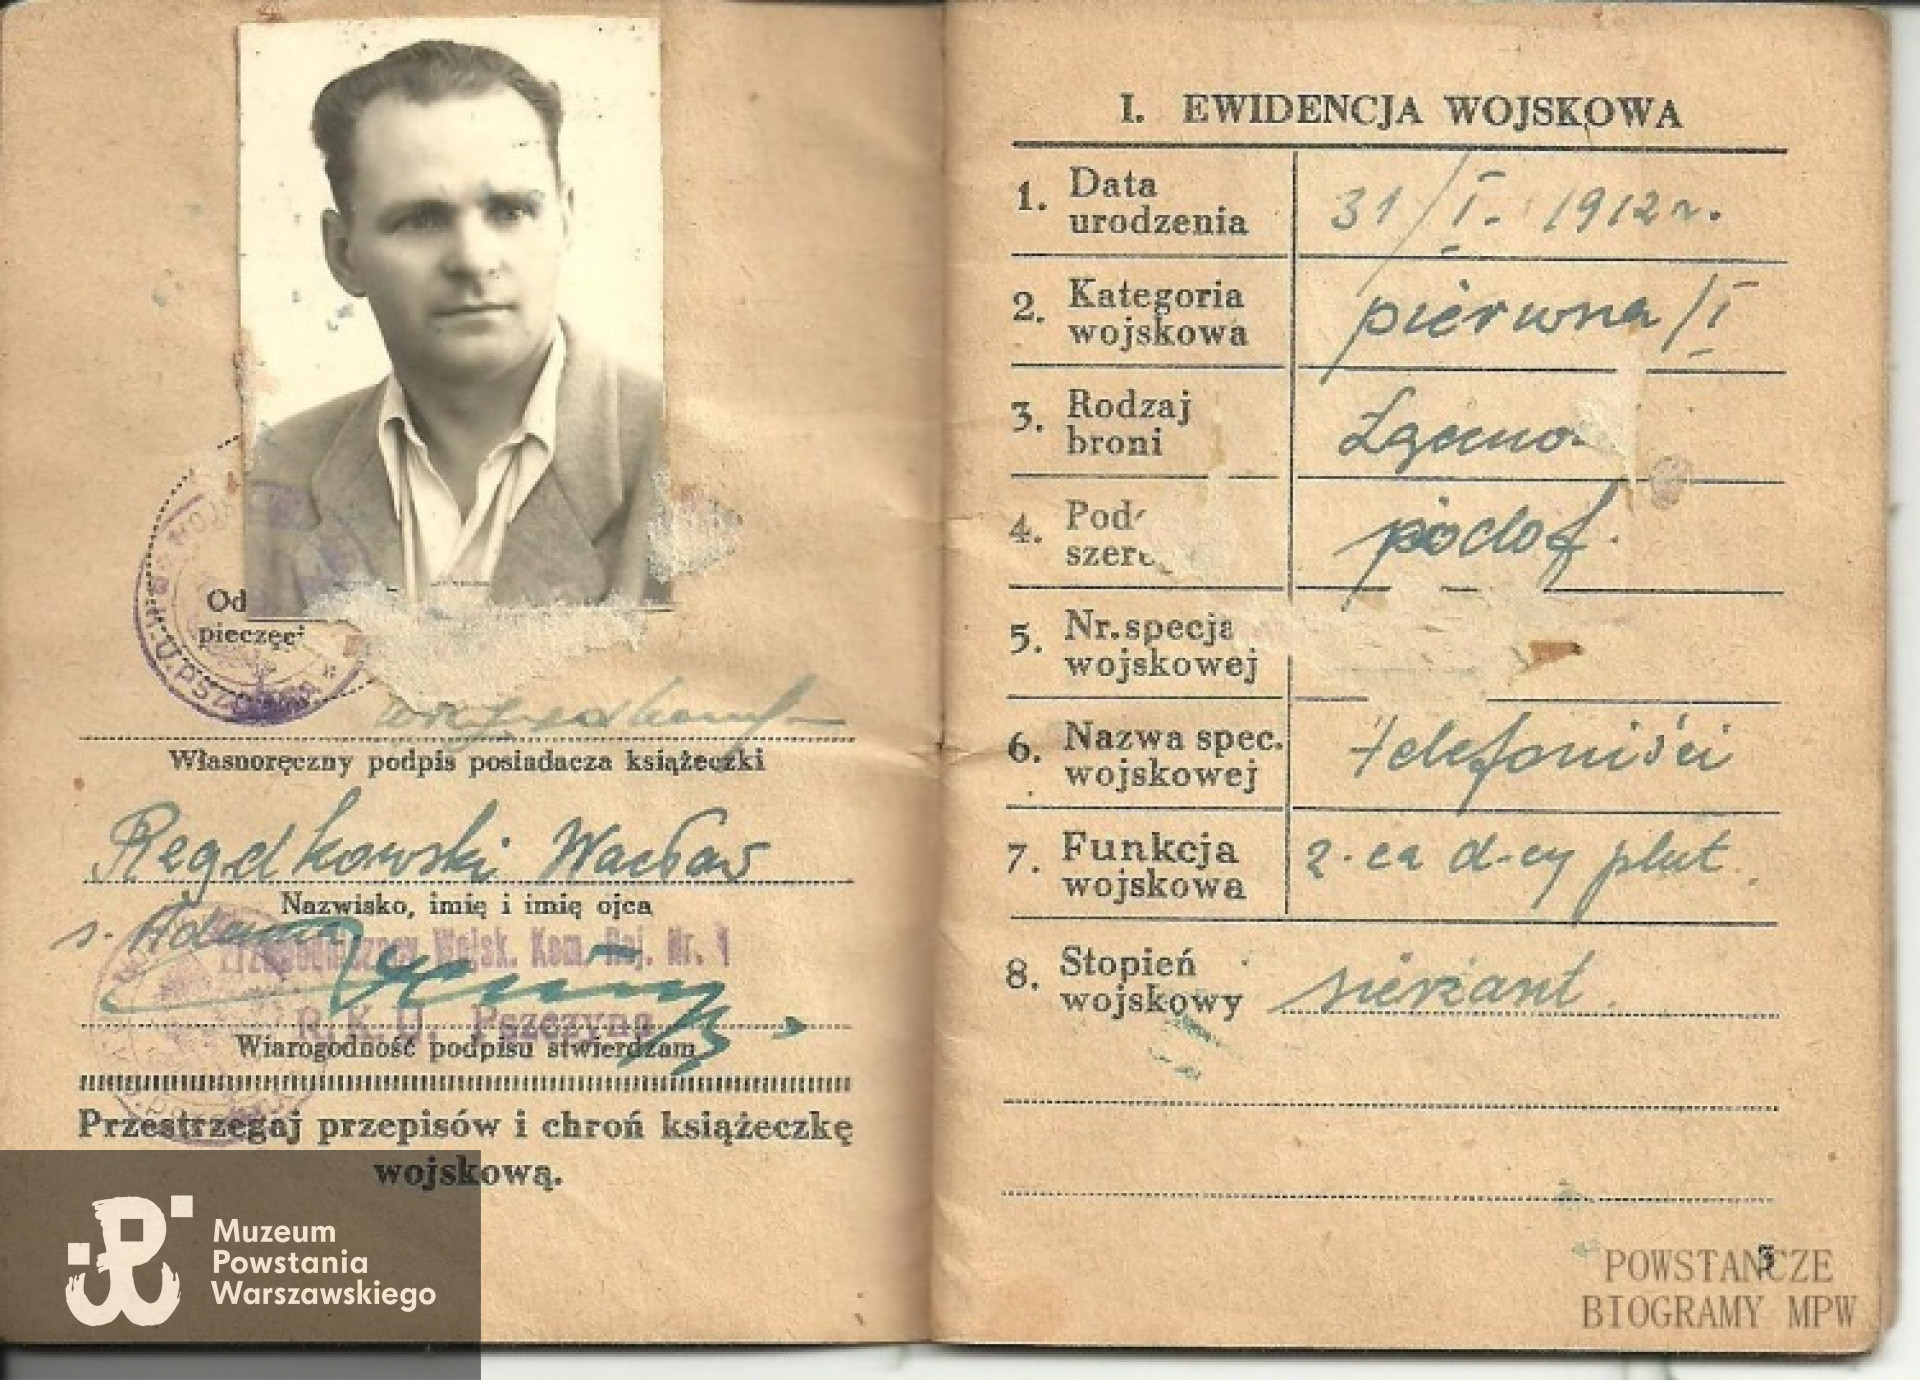 Od
pieczęci
W.K.U. PSZCZYNA *
Własnoręczny podpis posiadacza książeczki
Regdkowski Wacław
Nazwisko, imię i imię ojca
s. Adama
Wojsk. Kom. Raj. Nr. 1
R.K.U. Pszczyna
Wiarogodność podpisu stwierdzam
Przestrzegaj przepisów i chroń książeczkę
wojskową.
Muzeum
Powstania
Warszawskiego
I. EWIDENCJA WOJSKOWA
1. Data urodzenia 31/I. 1912 r.
2. Kategoria wojskowa pierwsza/I
3. Rodzaj broni Łączno-
4. Pod szere podof.
5. Nr. specja wojskowej
6. Nazwa spec. wojskowej telefoniści
7. Funkcja wojskowa z-ca d-cy plut.
8. Stopień wojskowy sierżant.
3
POWSTAŃCZE
BIOGRAMY MPW